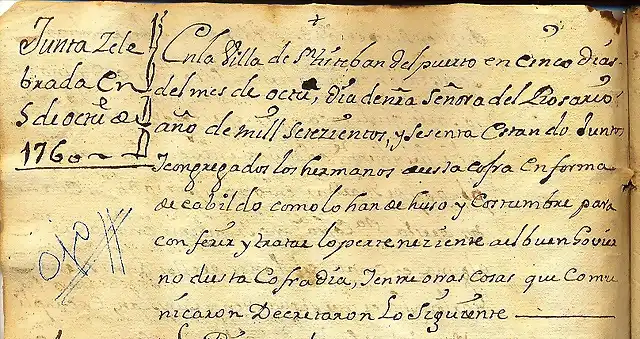 Junta Zele
brada en
5 de octre de
1760
ojo
En la Villa de Sn Esteban del puerto en cinco dias
del mes de octre, dia de nra Señora del Rosario
año de mill setezientos, y sesenta estando Juntos
Icongregados los hermanos desta cofra en forma
de cabildo como lo han de huso y costumbre para
conferir y tratar lo perteneziente al buen Govier
no desta Cofradia, Ientre otras cosas que comu
nicaron Decretaron Lo Siguiente